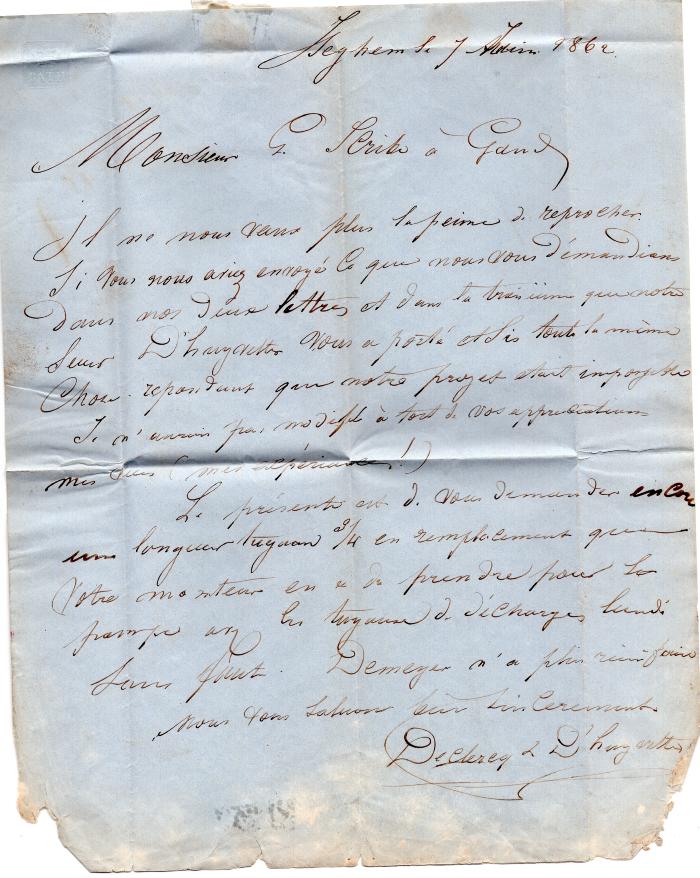 Iseghem le 7 1862
Monsieur G. Scribe à Gand
Il ne nous vaux plus la peine de reprocher.
Si vous nous aviez envoyé Ce que nous vous démandions
Dans nos deux lettres et dans la troisieme que notre
Sieur D'huyvetter vous a porté et dis toute la même
Chose. repondant que notre projet etait impossible
Je n'aurais pas modifié à tort de vos appreciations
mes vues (mes expériences!)
La présente est de vous demander encore
une longueur tuyaau 3/4 en remplacement que
Votre monteur en a du prendre pour la
pompe les tuyaux de décharges lundi
Sans faut. Demeyer n'a plus rien faire
Nous vous saluons bien sincerement
Declercq & D'huyvetter